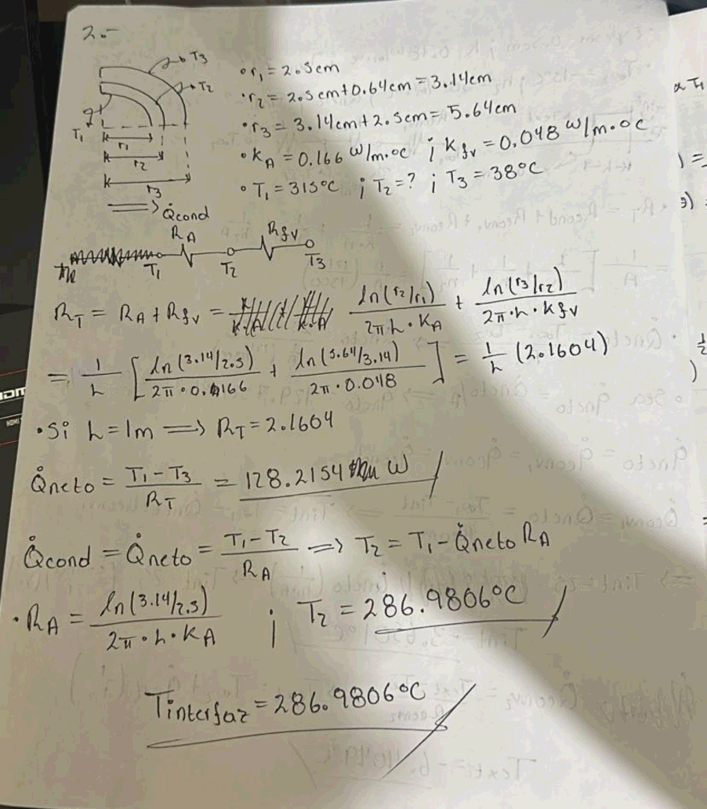 2.-
T3
T2
T1
r1
r2
r3
⟹ Q̇cond
• r1 = 2.5cm
• r2 = 2.5cm+0.64cm = 3.14cm
• r3 = 3.14cm+2.5cm = 5.64cm
• kA = 0.166 W/m·°C ; kfv = 0.048 W/m·°C
• T1 = 315°C ; T2 = ? ; T3 = 38°C
RA Rfv
T1 T2 T3
RT = RA + Rfv = ln(r2/r1) / 2π·L·kA + ln(r3/r2) / 2π·L·kfv
= 1/L [ ln(3.14/2.5) / 2π·0.166 + ln(5.64/3.14) / 2π·0.048 ] = 1/L (2.1604)
• Si L=1m ⟹ RT = 2.1604
Q̇neto = T1-T3 / RT = 128.2154 W
Q̇cond = Q̇neto = T1-T2 / RA ⟹ T2 = T1-Q̇neto RA
• RA = ln(3.14/2.5) / 2π·L·kA ; T2 = 286.9806°C
Tinterfaz = 286.9806°C